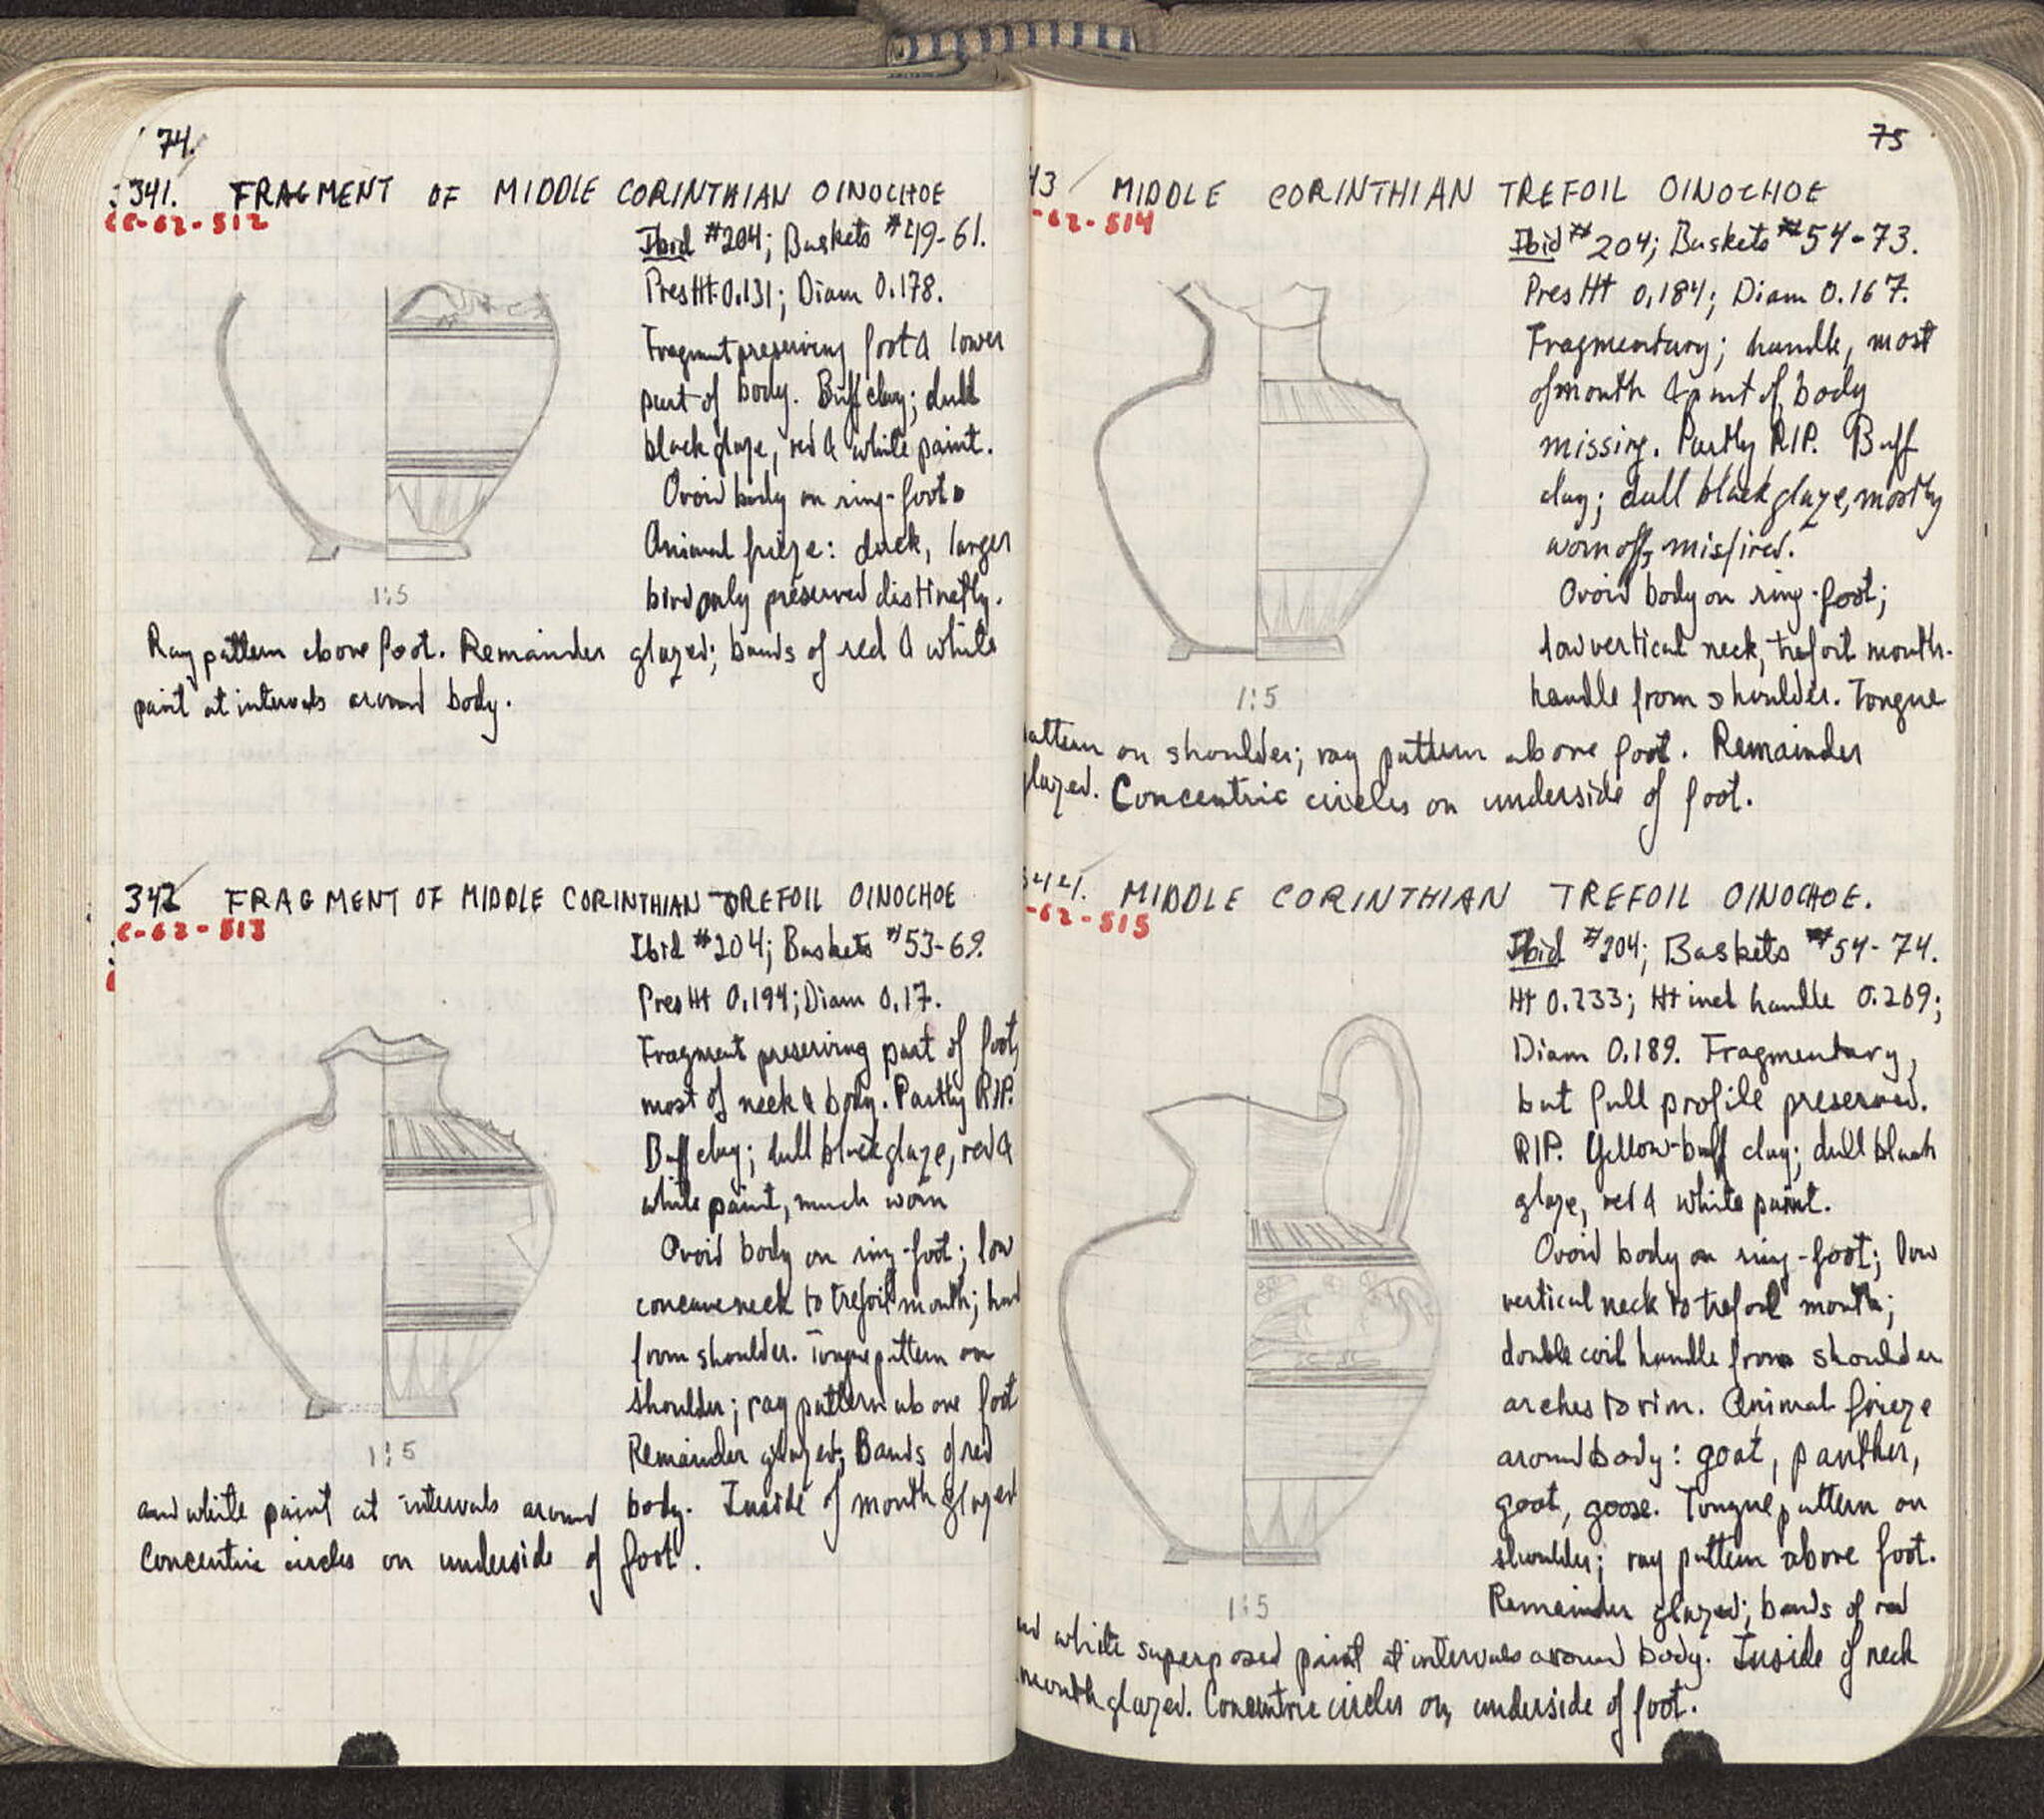 74.
341. FRAGMENT OF MIDDLE CORINTHIAN OINOCHOE
C-62-512
Ibid #204; Baskets #49-61.
Pres Ht 0.131; Diam 0.178.
Fragment preserving foot & lower
part of body. Buff clay; dull
black glaze, red & white paint.
Ovoid body on ring-foot.
Animal frieze: duck, larger
bird only preserved distinctly.
1:5
Ray pattern above foot. Remainder glazed; bands of red & white
paint at intervals around body.
342 FRAGMENT OF MIDDLE CORINTHIAN TREFOIL OINOCHOE
C-62-513
Ibid #204; Baskets #53-69.
Pres Ht 0.194; Diam 0.17.
Fragment preserving part of foot,
most of neck & body. Partly RIP.
Buff clay; dull black glaze, red &
white paint, much worn
Ovoid body on ring-foot; low
concave neck to trefoil mouth; han
from shoulder. Tongue pattern on
shoulder; ray pattern above foot
Remainder glazed; Bands of red
1:5
and white paint at intervals around body. Inside of mouth glazed
Concentric circles on underside of foot.
75
43 MIDDLE CORINTHIAN TREFOIL OINOCHOE
-62-514
Ibid #204; Baskets #54-73.
Pres Ht 0.184; Diam 0.167.
Fragmentary; handle, most
of mouth & part of body
missing. Partly RIP. Buff
clay; dull black glaze, mostly
worn off, misfired.
Ovoid body on ring-foot;
low vertical neck, trefoil mouth.
handle from shoulder. Tongue
1:5
attern on shoulder; ray pattern above foot. Remainder
glazed. Concentric circles on underside of foot.
344. MIDDLE CORINTHIAN TREFOIL OINOCHOE.
-62-515
Ibid #204; Baskets #54-74.
Ht 0.233; Ht incl handle 0.269;
Diam 0.189. Fragmentary,
but full profile preserved.
RIP. Yellow-buff clay; dull black
glaze, red & white paint.
Ovoid body on ring-foot; low
vertical neck to trefoil mouth;
double coil handle from shoulder
arches to rim. Animal frieze
around body: goat, panther,
goat, goose. Tongue pattern on
shoulder; ray pattern above foot.
Remainder glazed; bands of red
1:5
nd white superposed paint at intervals around body. Inside of neck
mouth glazed. Concentric circles on underside of foot.